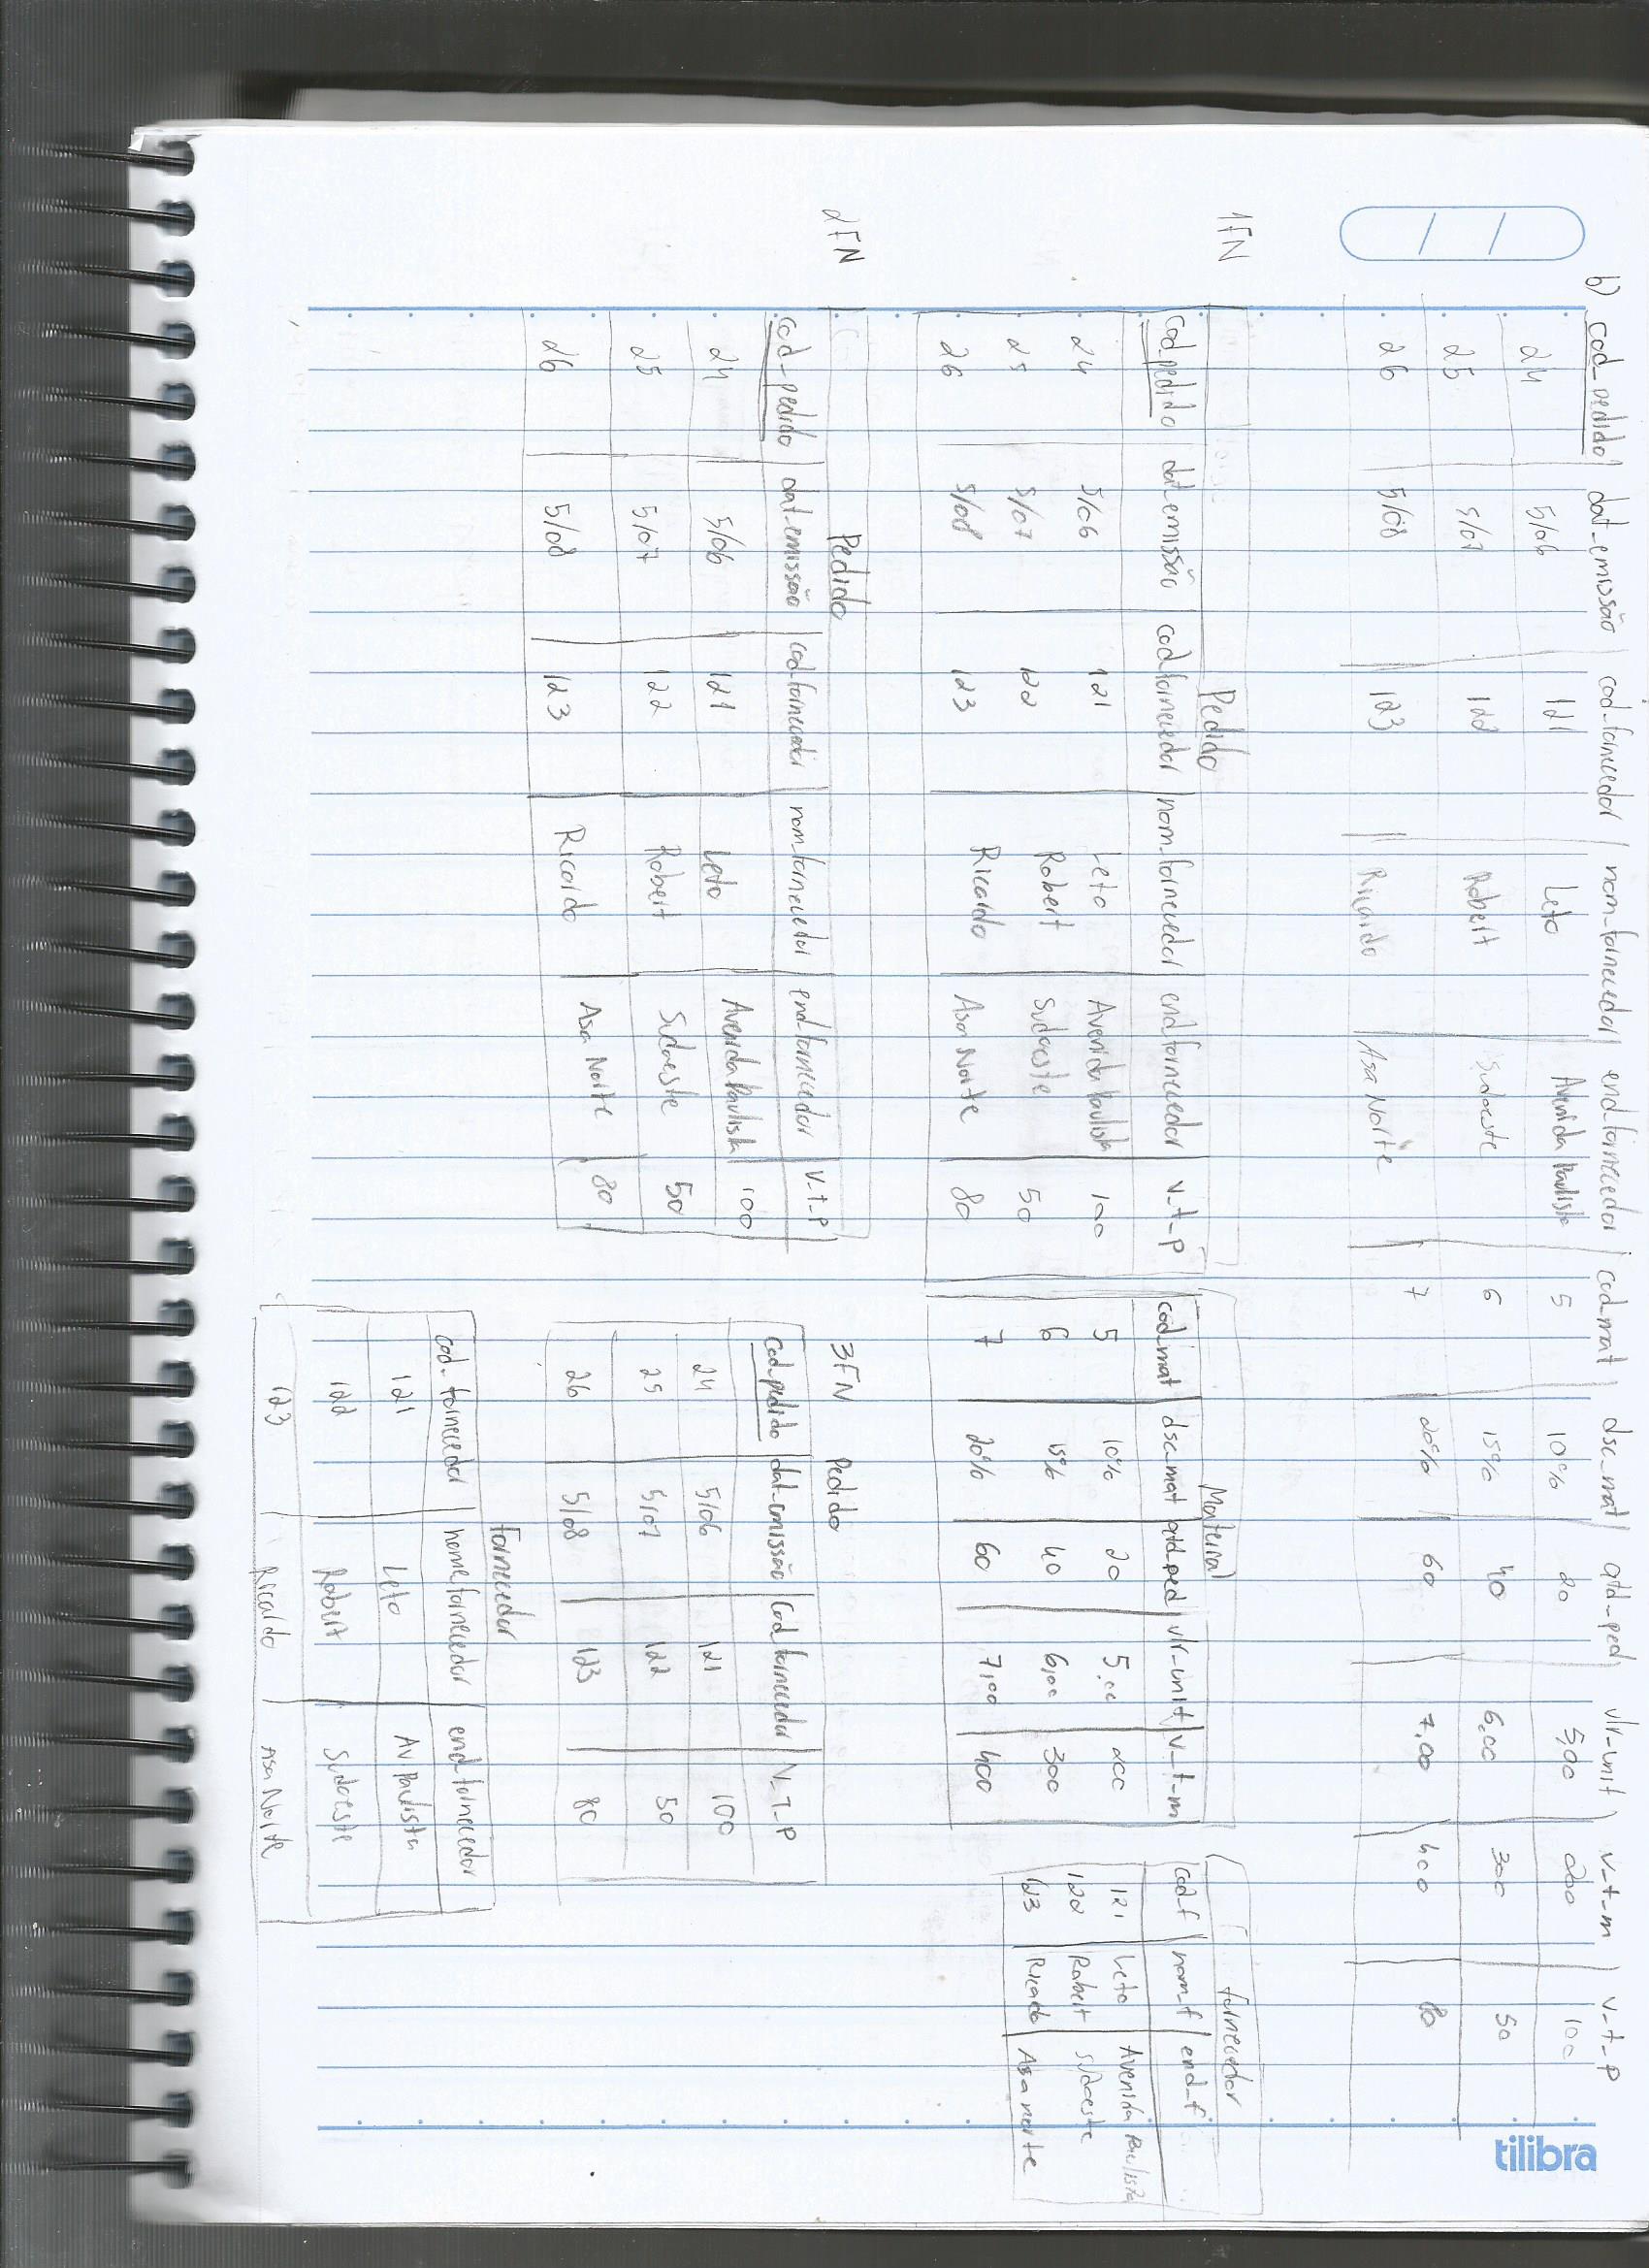 b) cod_pedido | dat_emissão | cod_fornecedor | nom_fornecedor | end_fornecedor | cod_mat | dsc_mat | qtd_ped | vlr_unit | v_t_m | v_t_p
24 5/06 121 Leto Avenida Paulista 5 10% 20 5,00 200 100
25 5/07 122 Robert Sudoeste 6 15% 40 6,00 300 50
26 5/08 123 Ricardo Asa Norte 7 20% 60 7,00 400 80
1FN
Pedido
cod_pedido | dat_emissão | cod_fornecedor | nom_fornecedor | end_fornecedor | v_t_p
24 5/06 121 Leto Avenida Paulista 100
25 5/07 122 Robert Sudoeste 50
26 5/08 123 Ricardo Asa Norte 80
Material
cod_mat | dsc_mat | qtd_ped | vlr_unit | v_t_m
5 10% 20 5,00 200
6 15% 40 6,00 300
7 20% 60 7,00 400
Fornecedor
cod_f | nom_f | end_f
121 Leto Avenida Paulista
122 Robert Sudoeste
123 Ricado Asa norte
2FN
Pedido
cod_pedido | dat_emissão | cod_fornecedor | nom_fornecedor | end_fornecedor | v_t_p
24 5/06 121 Leto Avenida Paulista 100
25 5/07 122 Robert Sudoeste 50
26 5/08 123 Ricardo Asa Norte 80
3FN Pedido
cod_pedido | dat_emissão | cod_fornecedor | V_T_P
24 5/06 121 100
25 5/07 122 50
26 5/08 123 80
Fornecedor
cod_fornecedor | nome_fornecedor | end_fornecedor
121 Leto Av Paulista
122 Robert Sudoeste
123 Ricardo Asa Norte
tilibra